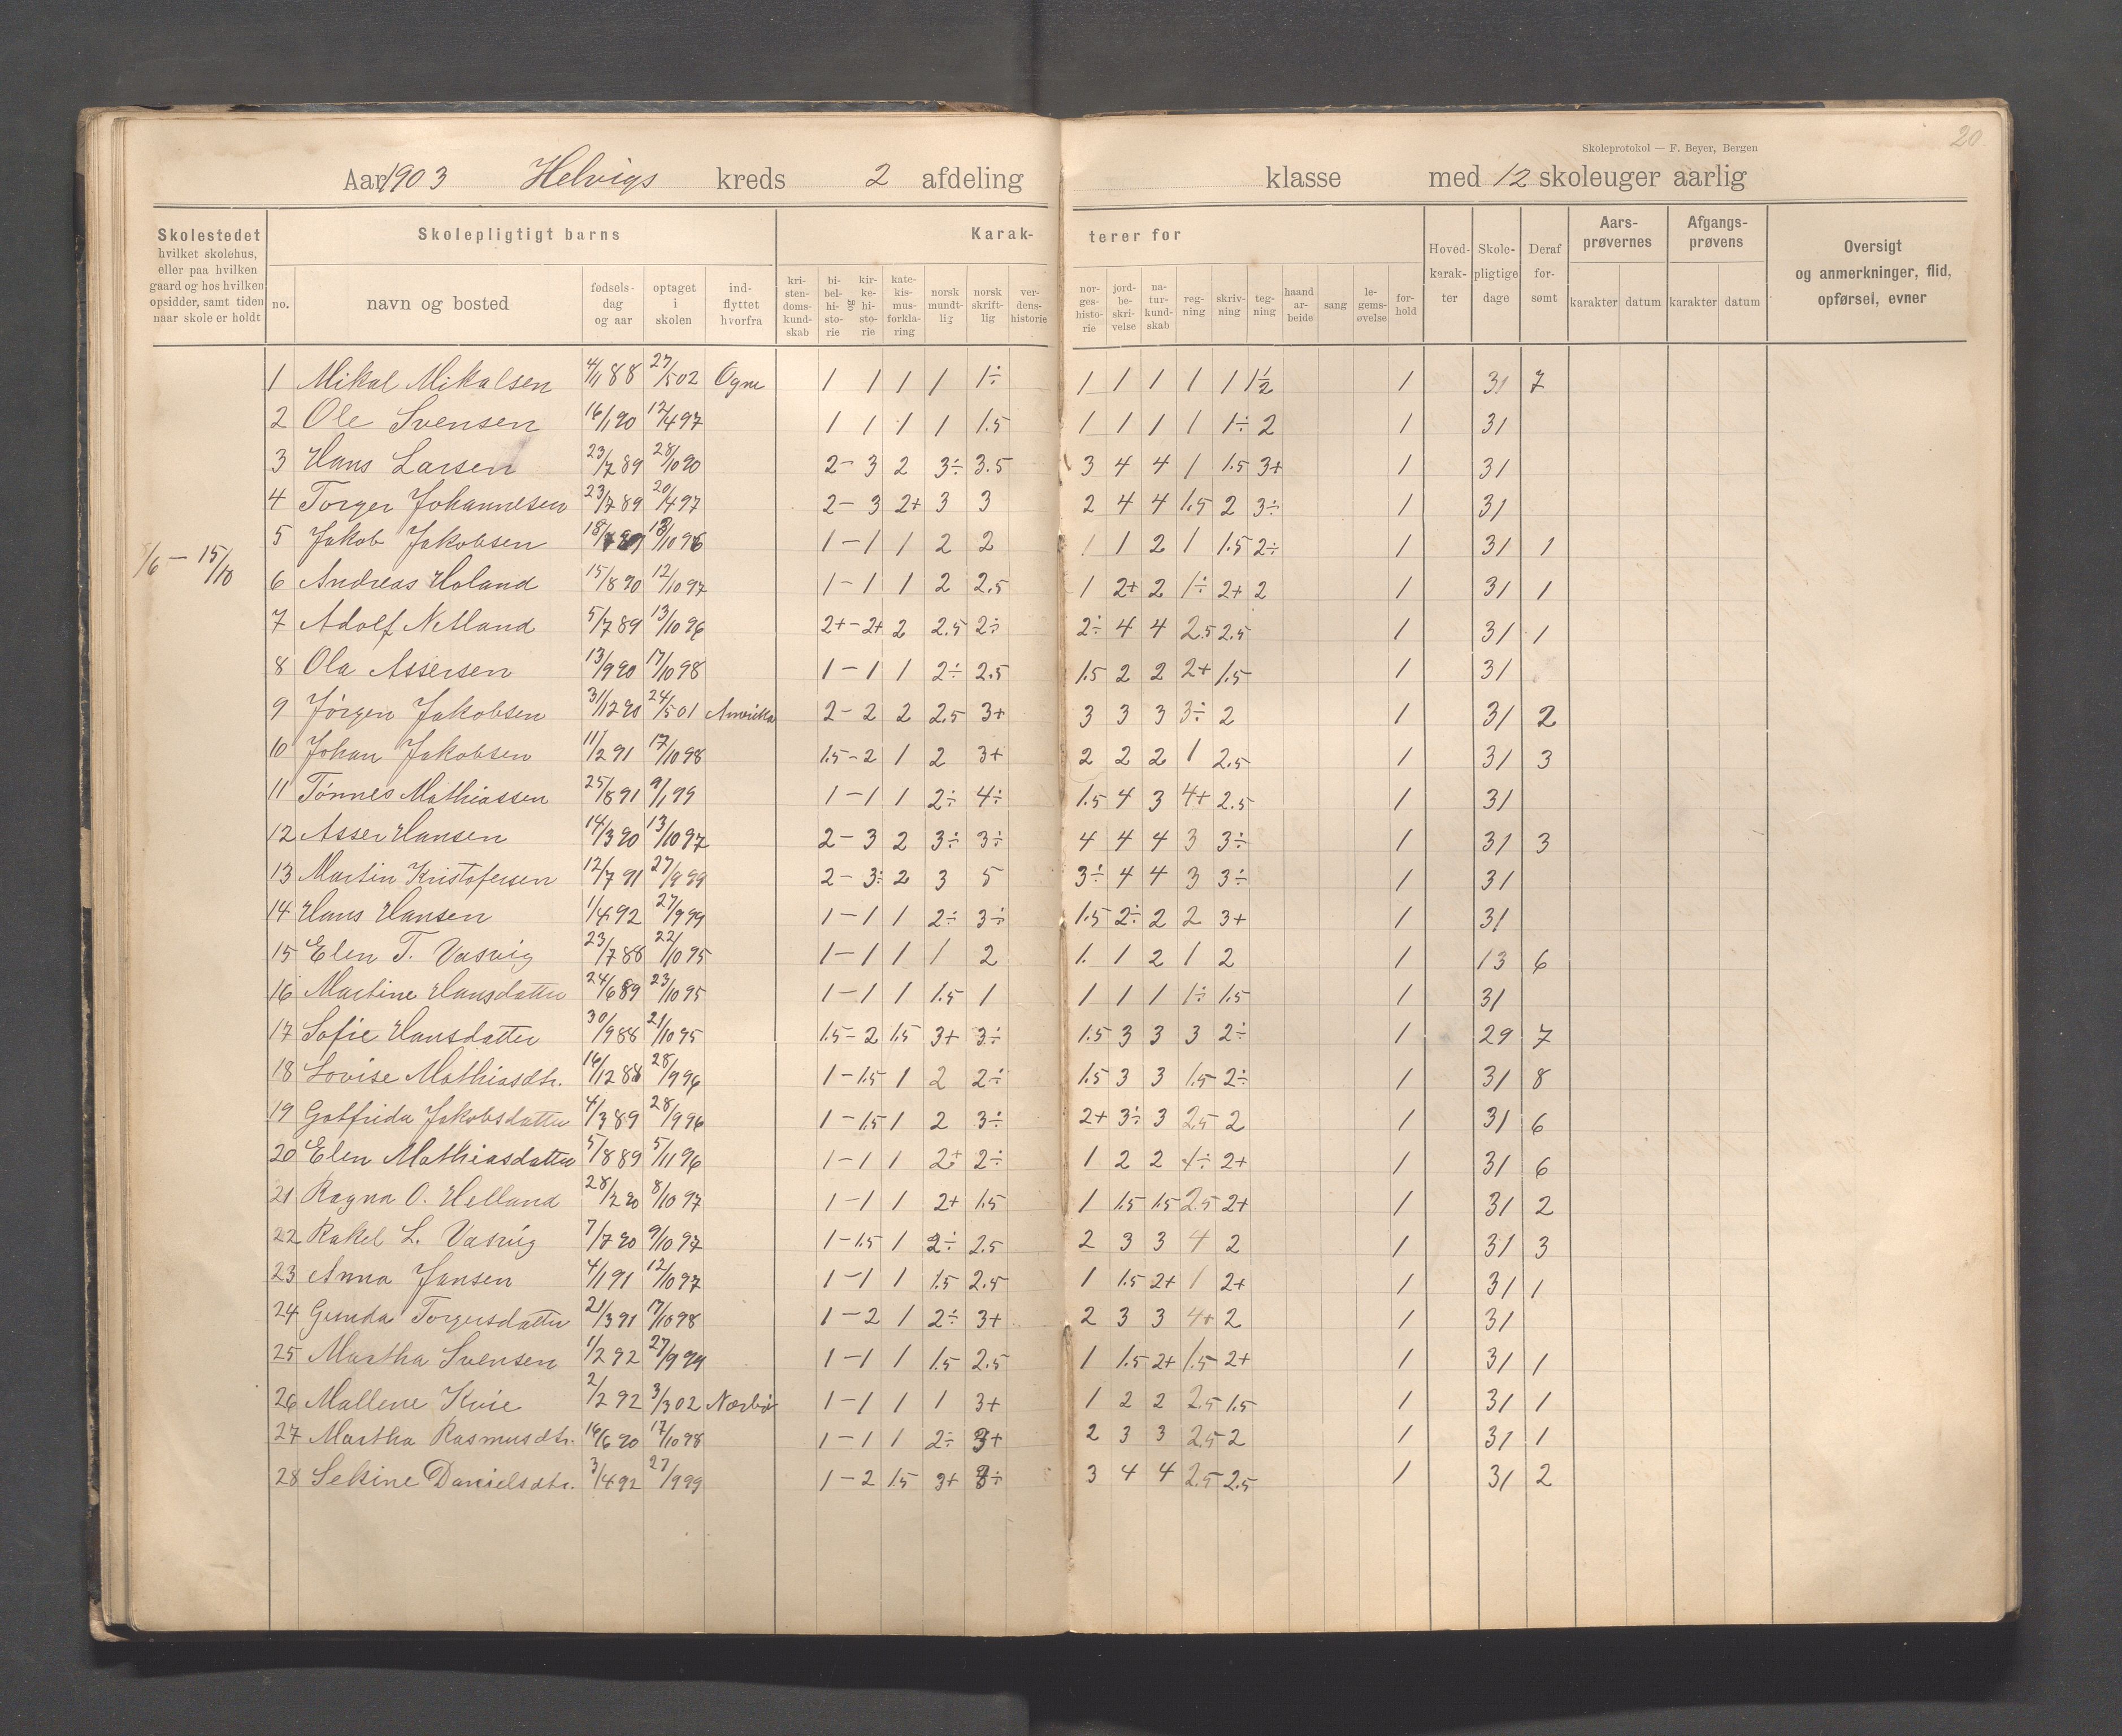 20
Skoleprotokol — F. Beyer, Bergen
Aar 1903 Helvigs kreds 2 afdeling klasse med 12 skoleuger aarlig
Skolestedet hvilket skolehus, eller paa hvilken gaard og hos hvilken opsidder, samt tiden naar skole er holdt
Skolepligtigt barns
Karak-
terer for
no. navn og bosted fødsels-dag og aar optaget i skolen ind-flyttet hvorfra
kri-sten-doms-kund-skab bi-bel-hi-sto-rie og kir-ke-hi-sto-rie kate-kis-mus-forkla-ring norsk mundt-lig norsk skrift-lig ver-dens-historie
nor-ges-histo-rie jord-be-skri-velse na-tur-kund-skab reg-ning skriv-ning teg-ning haand ar-beide sang le-gems-øvelse for-hold
Hoved-karak-ter Skole-pligtige dage Deraf for-sømt
Aars-prøvernes karakter datum
Afgangs-prøvens karakter datum
Oversigt og anmerkninger, flid, opførsel, evner
1 Mikal Mikalsen 4/11 88 27/5 02 Ogne 1 1 1 1 1÷ 1 1 1 1 1 1½ 1 31 7
2 Ole Svensen 16/1 90 12/4 97 1 1 1 1 1.5 1 1 1 1 1÷ 2 1 31
3 Hans Larsen 23/7 89 28/10 90 2 – 3 2 3÷ 3.5 3 4 4 1 1.5 3+ 1 31
4 Torger Johannesen 23/7 89 20/4 97 2 – 3 2+ 3 3 2 4 4 1.5 2 3÷ 1 31
5 Jakob Jakobsen 13/10 96 1 – 1 1 2 2 1 1 2 1 1.5 2÷ 1 31 1
/6 – 15/10
6 Andreas Holand 15/8 90 12/10 97 1 – 1 1 2 2.5 1 2+ 2 1÷ 2+ 2 1 31 1
7 Adolf Netland 5/7 89 13/10 96 2+ – 2+ 2 2.5 2÷ 2÷ 4 4 2.5 2.5 1 31 1
8 Ola Assersen 13/9 90 17/10 98 1 – 1 1 2÷ 2.5 1.5 2 2 2+ 1.5 1 31
9 Jörgen Jakobsen 31/12 90 24/5 01 Amerika 2 – 2 2 2.5 3+ 3 3 3 3÷ 2 1 31 2
10 Johan Jakobsen 11/2 91 17/10 98 1.5 – 2 1 2 3+ 2 2 2 1 2.5 1 31 3
11 Tönnes Mathiassen 25/8 91 9/1 99 1 – 1 1 2÷ 4÷ 1.5 4 3 4+ 2.5 1 31
12 Asser Hansen 14/3 90 13/10 97 2 – 3 2 3÷ 3÷ 4 4 4 3 3÷ 1 31 3
13 Martin Kristofersen 12/7 91 27/9 99 2 – 3÷ 2 3 5 3÷ 4 4 3 3÷ 1 31
14 Hans Hansen 1/4 92 27/9 99 1 – 1 1 2÷ 3÷ 1.5 2÷ 2 2 3+ 1 31
15 Elen T. Vasvig 23/7 88 22/10 95 1 – 1 1 1 2 1. 1 2 1 2 1 13 6
16 Martine Hansdatter 24/6 89 23/10 95 1 – 1 1 1.5 1 1 1 1 1÷ 1.5 1 31
17 Sofie Hansdatter 30/9 88 21/10 95 1.5 – 2 1.5 3+ 3÷ 1.5 3 3 3 2÷ 1 29 7
18 Lovise Mathiasdtr. 16/12 88 28/9 96 1 – 1.5 1 2 2÷ 1.5 3 3 1.5 2÷ 1 31 8
19 Gotfrida Jakobsdatter 4/3 89 28/9 96 1 – 1.5 1 2 3÷ 2+ 3÷ 3 2.5 2 1 31 6
20 Elen Mathiasdatter 5/8 89 5/11 96 1 – 1 1 2+ 2÷ 1 2 2 1÷ 2+ 1 31 6
21 Ragna O. Helland 28/2 90 8/10 97 1 – 1 1 2+ 1.5 1 1.5 1.5 2.5 2+ 1 31 2
22 Rakel L. Vasvig 7/7 90 9/10 97 1 – 1.5 1 2÷ 2.5 2 3 3 4 2 1 31 3
23 Anna Jansen 4/1 91 12/10 97 1 – 1 1 1.5 2.5 1 1.5 2+ 1 2+ 1 31 1
24 Gunda Torgersdatter 21/3 91 17/10 98 1 – 2 1 2÷ 3+ 2 3 3 4+ 2 1 31
25 Martha Svensen 1/2 92 27/9 99 1 – 1 1 1.5 2.5 1 1.5 2+ 1.5 2+ 1 31 1
26 Mallene Kvie 2/2 92 3/3 02 Nærbø 1 – 1 1 1 3+ 1 2 2 2.5 1.5 1 31 1
27 Martha Rasmusdtr. 16/6 90 17/10 98 1 – 1 1 2÷ 3+ 2 3 3 2.5 2 1 31 1
28 Sekine Danielsdtr. 3/4 92 27/9 99 1 – 2 1.5 3+ 3÷ 3 4 4 2.5 2.5 1 31 2